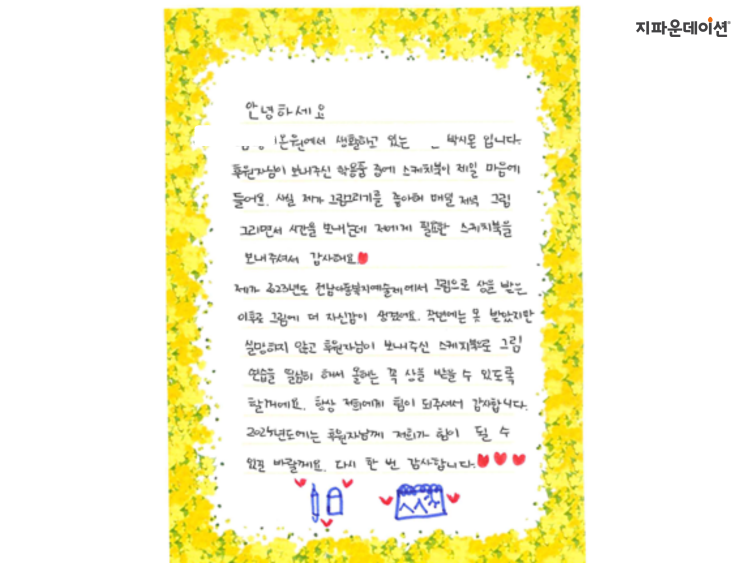 지파운데이션
안녕하세요
온원에서 생활하고 있는 박시온 입니다.
후원자님이 보내주신 학용품 중에 스케치북이 제일 마음에
들어요. 사실 제가 그림그리기를 좋아해 매일 저녁 그림
그리면서 시간을 보내는데 저에게 필요한 스케치북을
보내주셔서 감사해요
제가 2023년도 전남아동복지예술제에서 그림으로 상을 받은
이후로 그림에 더 자신감이 생겼어요. 작년에는 못 받았지만
실망하지 않고 후원자님이 보내주신 스케치북으로 그림
연습을 열심히 해서 올해는 꼭 상을 받을 수 있도록
할게에요. 항상 저희에게 힘이 되주셔서 감사합니다.
2025년도에는 후원자님께 저희가 힘이 될 수
있길 바랄께요. 다시 한 번 감사합니다.